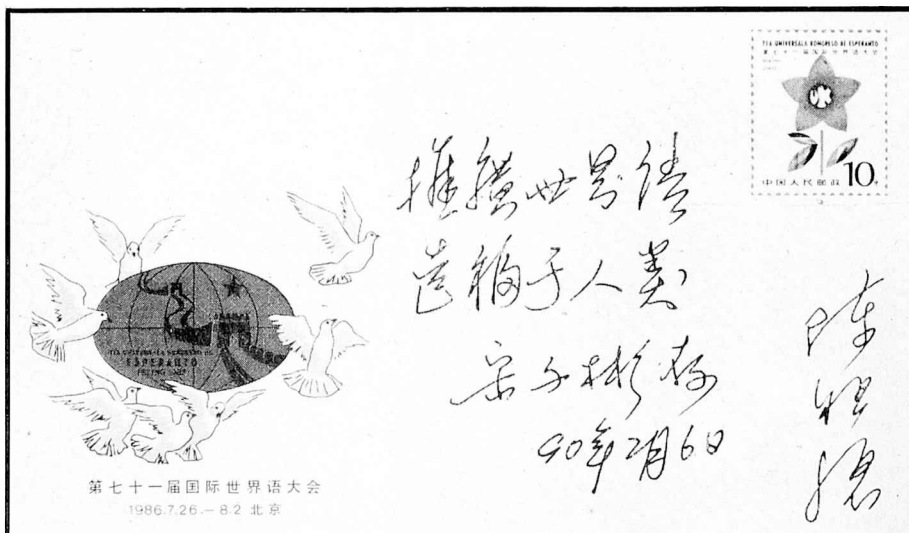 71A UNIVERSALA KONGRESO DE ESPERANTO
第七十一届国际世界语大会
中国人民邮政 10分
推广世界语
造福于人类
宋子彬存
90年2月6日
陈
71A UNIVERSALA KONGRESO DE
ESPERANTO
第七十一届国际世界语大会
1986.7.26.－8.2 北京